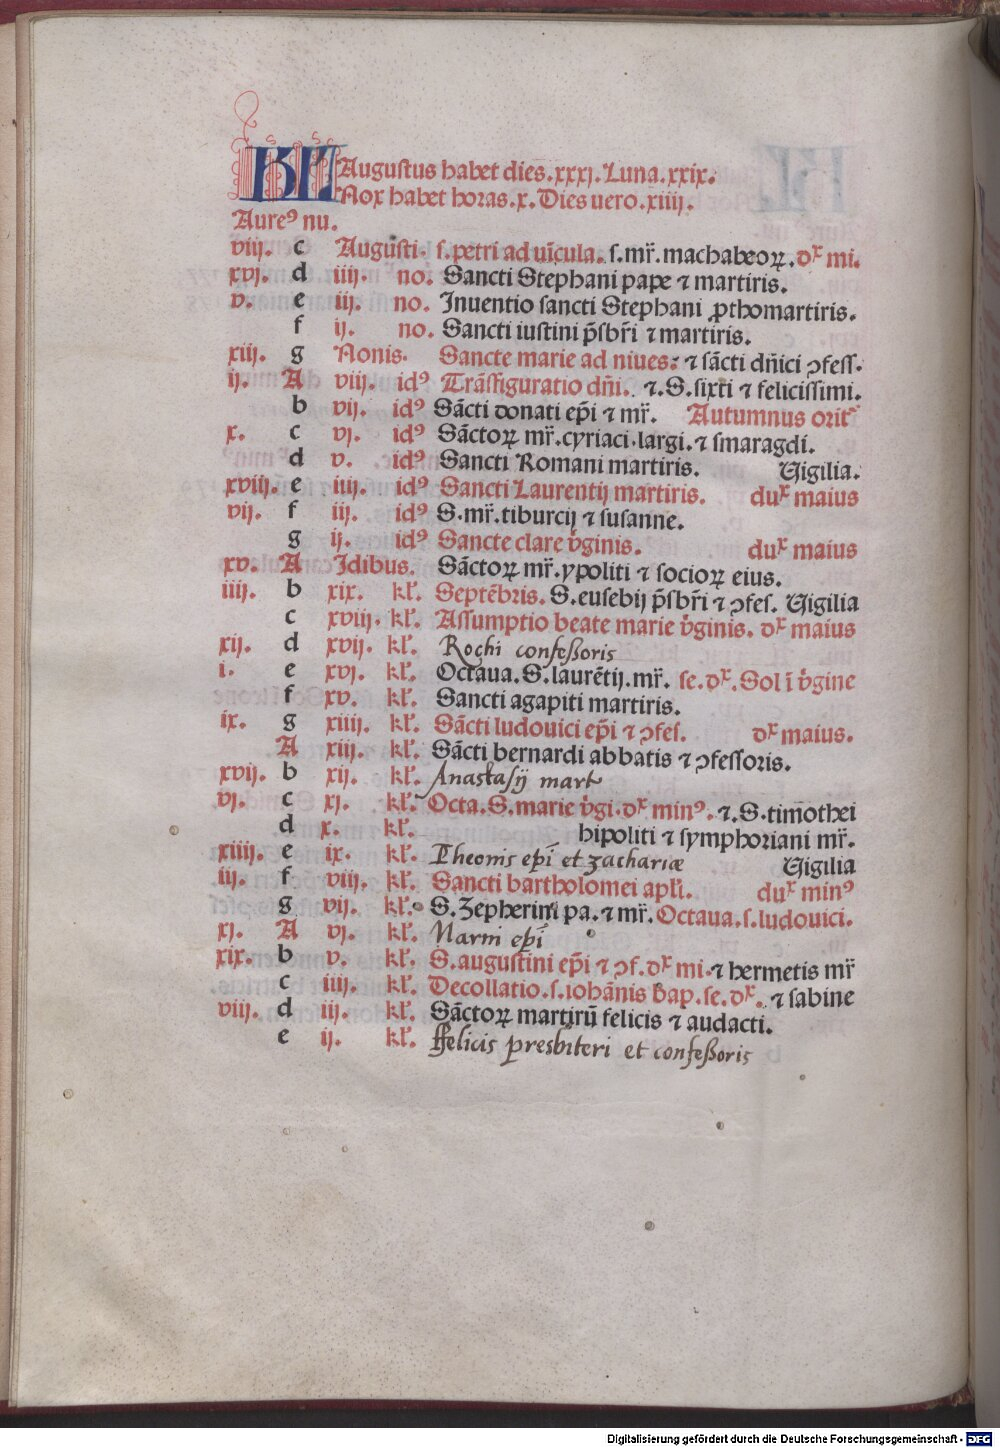 KL Augustus habet dies.xxxj. Luna.xxix.
Nox habet horas.x. Dies uero.xiiij.
Aureꝰ nu.
viij. c Augusti. s.petri ad uīcula. s.mr̄.machabeoꝝ.dx mi.
xvj. d iiij. no. Sancti Stephani pape ⁊ martiris.
v. e iij. no. Inuentio sancti Stephani ꝓthomartiris.
f ij. no. Sancti iustini p̄sbr̄i ⁊ martiris.
xiij. g Nonis. Sancte marie ad niues: ⁊ sācti dn̄ici ↄfess.
ij. A viij. idꝰ Trāsfiguratio dn̄i. ⁊.S.sixti ⁊ felicissimi.
b vij. idꝰ Sācti donati ep̄i ⁊ mr̄. Autumnus orit
x. c vj. idꝰ Sāctoꝝ mr̄.cyriaci.largi.⁊ smaragdi.
d v. idꝰ Sancti Romani martiris. Vigilia.
xviij. e iiij. idꝰ Sancti Laurentij martiris. dux maius
vij. f iij. idꝰ S.mr̄.tiburcij ⁊ susanne.
g ij. idꝰ Sancte clare v̄ginis. dux maius
xv. A Idibus. Sāctoꝝ mr̄.ypoliti ⁊ socioꝝ eius.
iiij. b xix. kl. Septēbris. S.eusebij p̄sbr̄i ⁊ ↄfes. Vigilia
c xviij. kl. Assumptio beate marie v̄ginis. dx maius
xij. d xvij. kl. Rochi confeßoris
i. e xvj. kl. Octaua.S.laurētij.mr̄. se.dx.Sol ī v̄gine
f xv. kl. Sancti agapiti martiris.
ix. g xiiij. kl. Sācti ludouici ep̄i ⁊ ↄfes. dx maius.
A xiij. kl. Sācti bernardi abbatis ⁊ ↄfessoris.
xvij. b xij. kl. Anastasij mart
vj. c xj. kl. Octa.S.marie v̄gi.dx minꝰ. ⁊.S.timothei
d x. kl. hipoliti ⁊ symphoriani mr̄.
xiiij. e ix. kl. Theonis ep̄i et zachariæ Vigilia
iij. f viij. kl. Sancti bartholomei apl̄i. dux minꝰ
g vij. kl. S.Zepherini pa.⁊ mr̄. Octaua.s.ludouici.
xj. A vj. kl. Narni ep̄i
xix. b v. kl. S.augustini ep̄i ⁊ ↄf.dx mi.⁊ hermetis mr̄
c iiij. kl. Decollatio.s.iohānis bap.se.dx. ⁊ sabine
viij. d iij. kl. Sāctoꝝ martirū felicis ⁊ audacti.
e ij. kl. ffelicis presbiteri et confeßoris
Digitalisierung gefördert durch die Deutsche Forschungsgemeinschaft - DFG